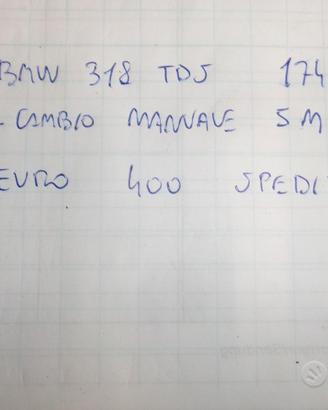 BMW 318 TDS 174
- CAMBIO MANUALE 5 M
EURO 400 SPEDI